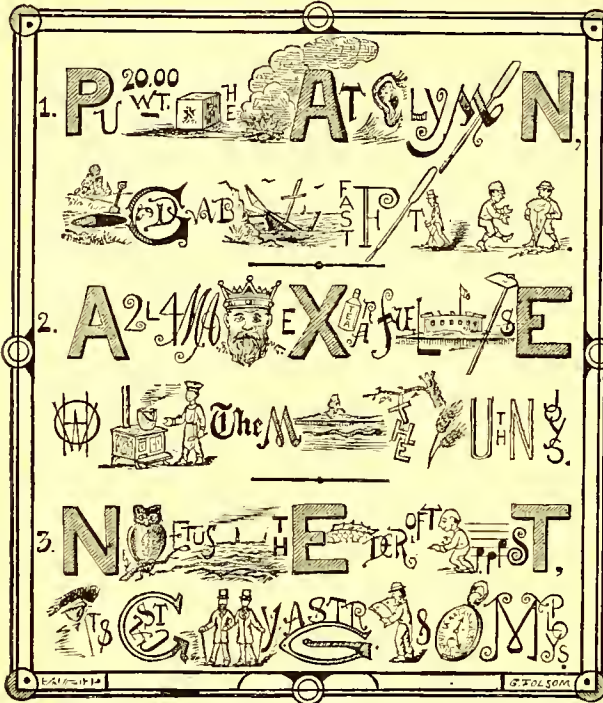 1. PU 20.00 WT. HE AT LYM N,
G WAB FAST T T
2. A 2L4MA E X TEA RA FUEL S E
WHO The M THE UTHN JOYS.
3. N FTUS THE DER OFT p.pf ST,
TS G ST Y A STR & O MPLYS.
G. FOLSOM